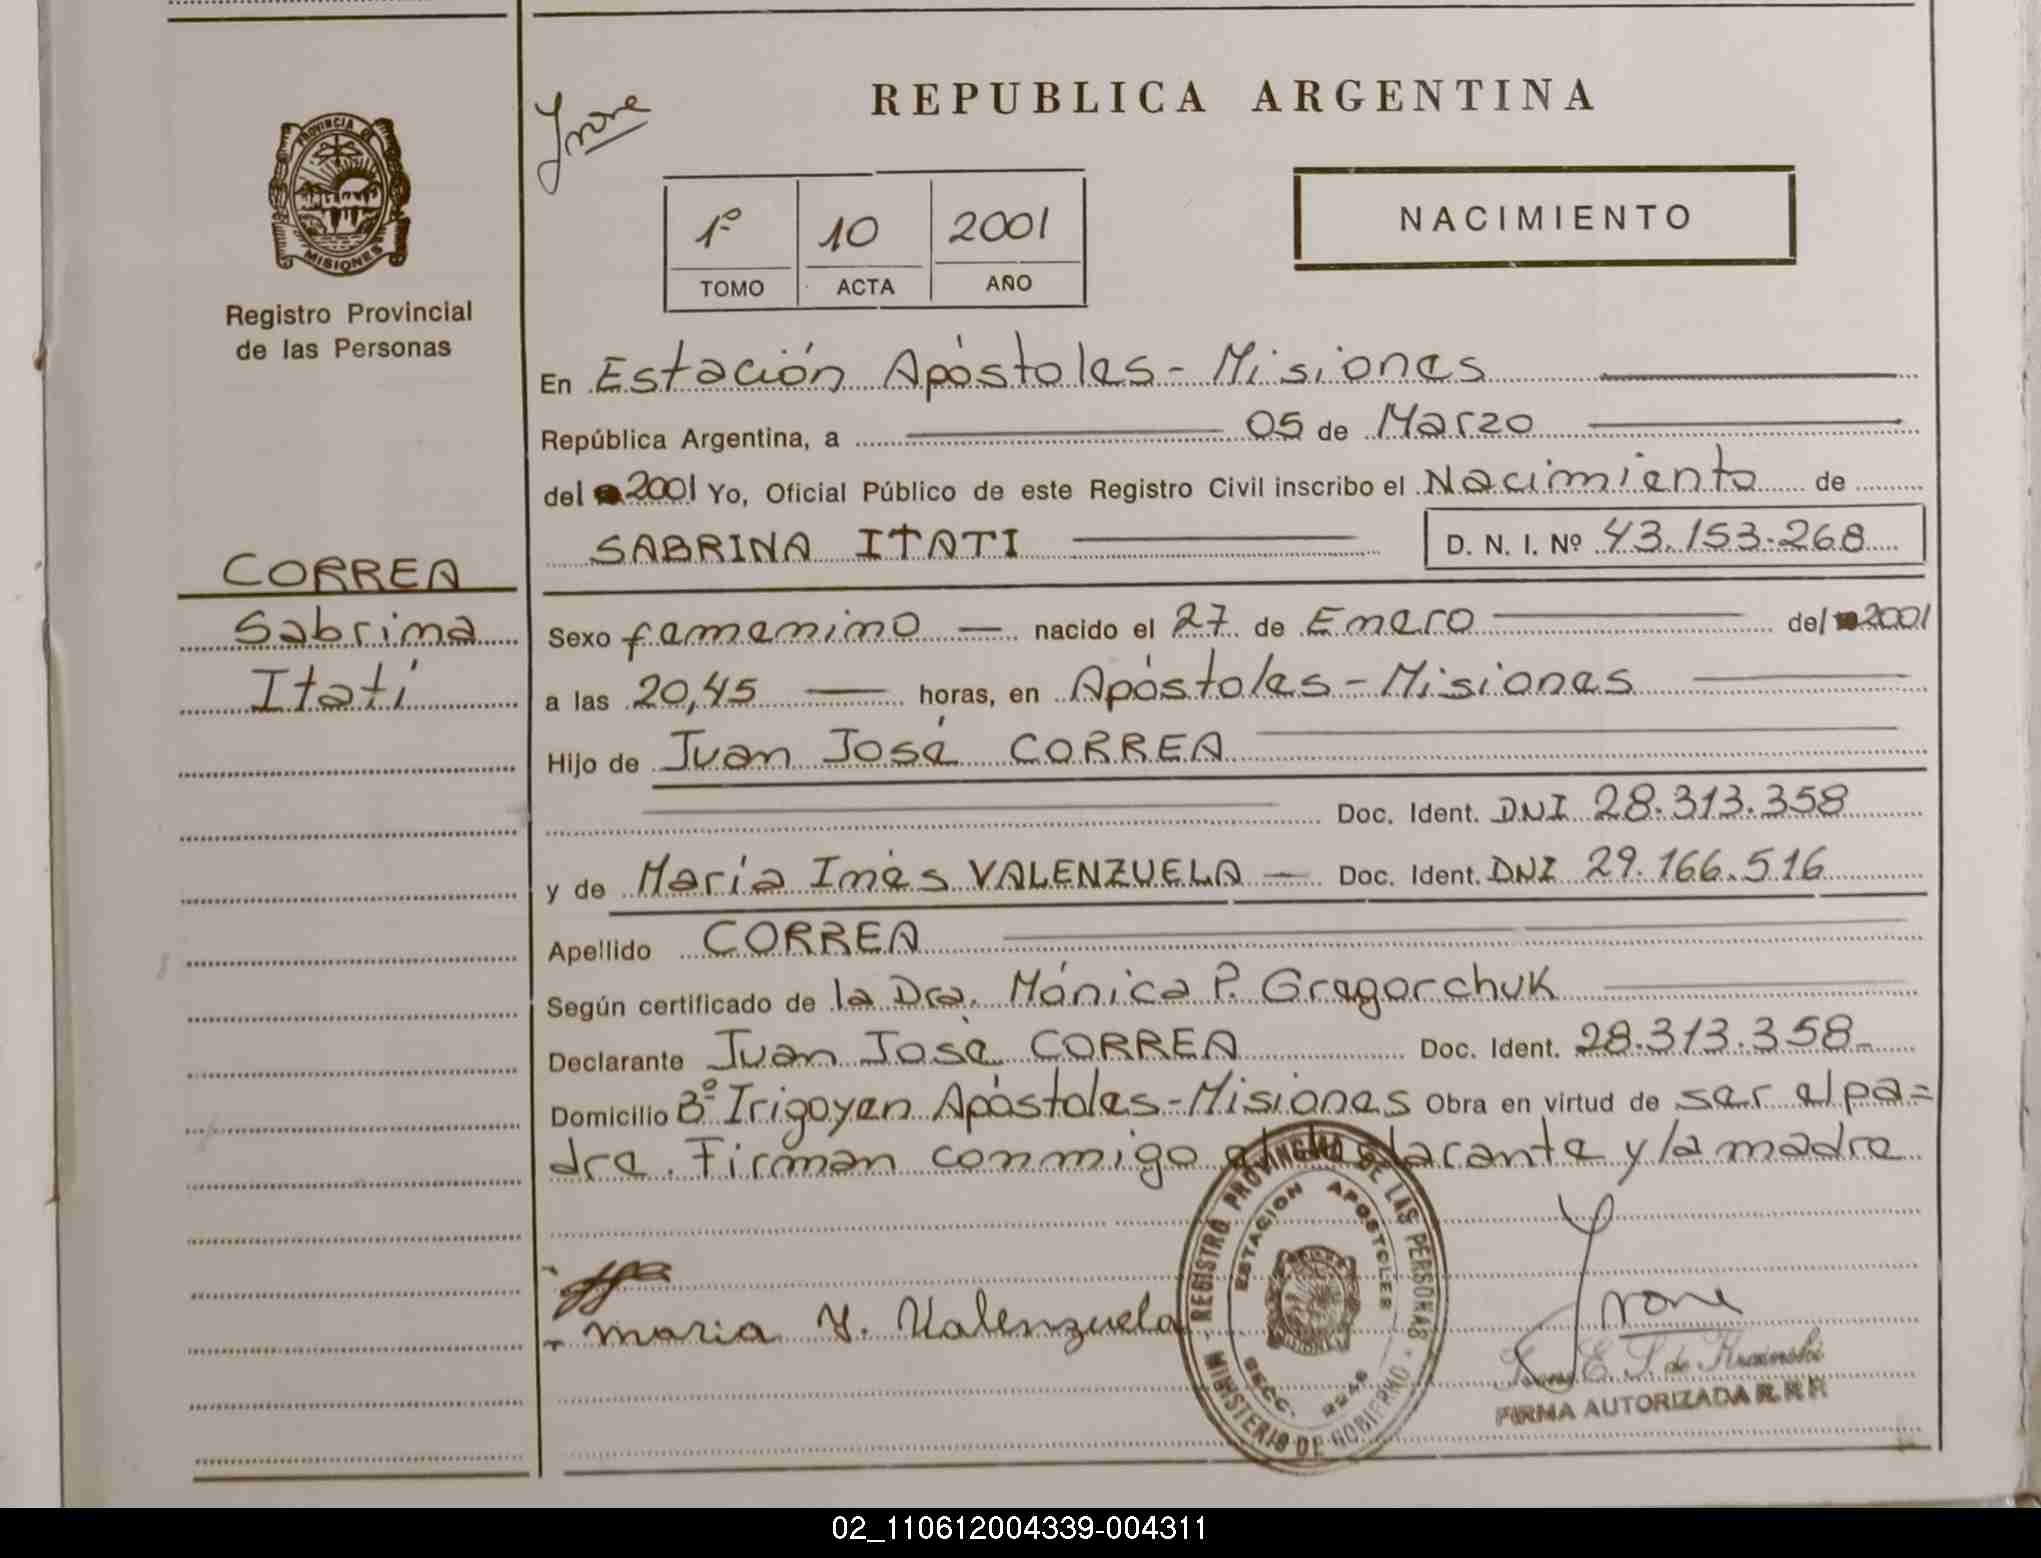 REPUBLICA ARGENTINA
Irone
PROVINCIA DE
MISIONES
Registro Provincial
de las Personas
1º 10 2001
TOMO ACTA AÑO
NACIMIENTO
En Estación Apóstoles - Misiones
República Argentina, a 05 de Marzo
del 2001 Yo, Oficial Público de este Registro Civil inscribo el Nacimiento de
SABRINA ITATI D. N. I. Nº 43.153.268
CORREA
Sabrina
Itatí
Sexo femenino nacido el 27 de Enero del 2001
a las 20,45 horas, en Apóstoles - Misiones
Hijo de Juan José CORREA
Doc. Ident. DNI 28.313.358
y de María Inés VALENZUELA Doc. Ident. DNI 29.166.516
Apellido CORREA
Según certificado de la Dra. Mónica P. Gregorchuk
Declarante Juan José CORREA Doc. Ident. 28.313.358
Domicilio Bº Irigoyen Apóstoles - Misiones Obra en virtud de ser el pa=
dre. Firman conmigo el declarante y la madre
maria Y. Valenzuela
REGISTRO PROVINCIAL DE LAS PERSONAS
ESTACION APOSTOLES
SECC. 2246
MINISTERIO DE GOBIERNO
Irone
E. S. de Krasinski
FIRMA AUTORIZADA R.P.P.
02_110612004339-004311